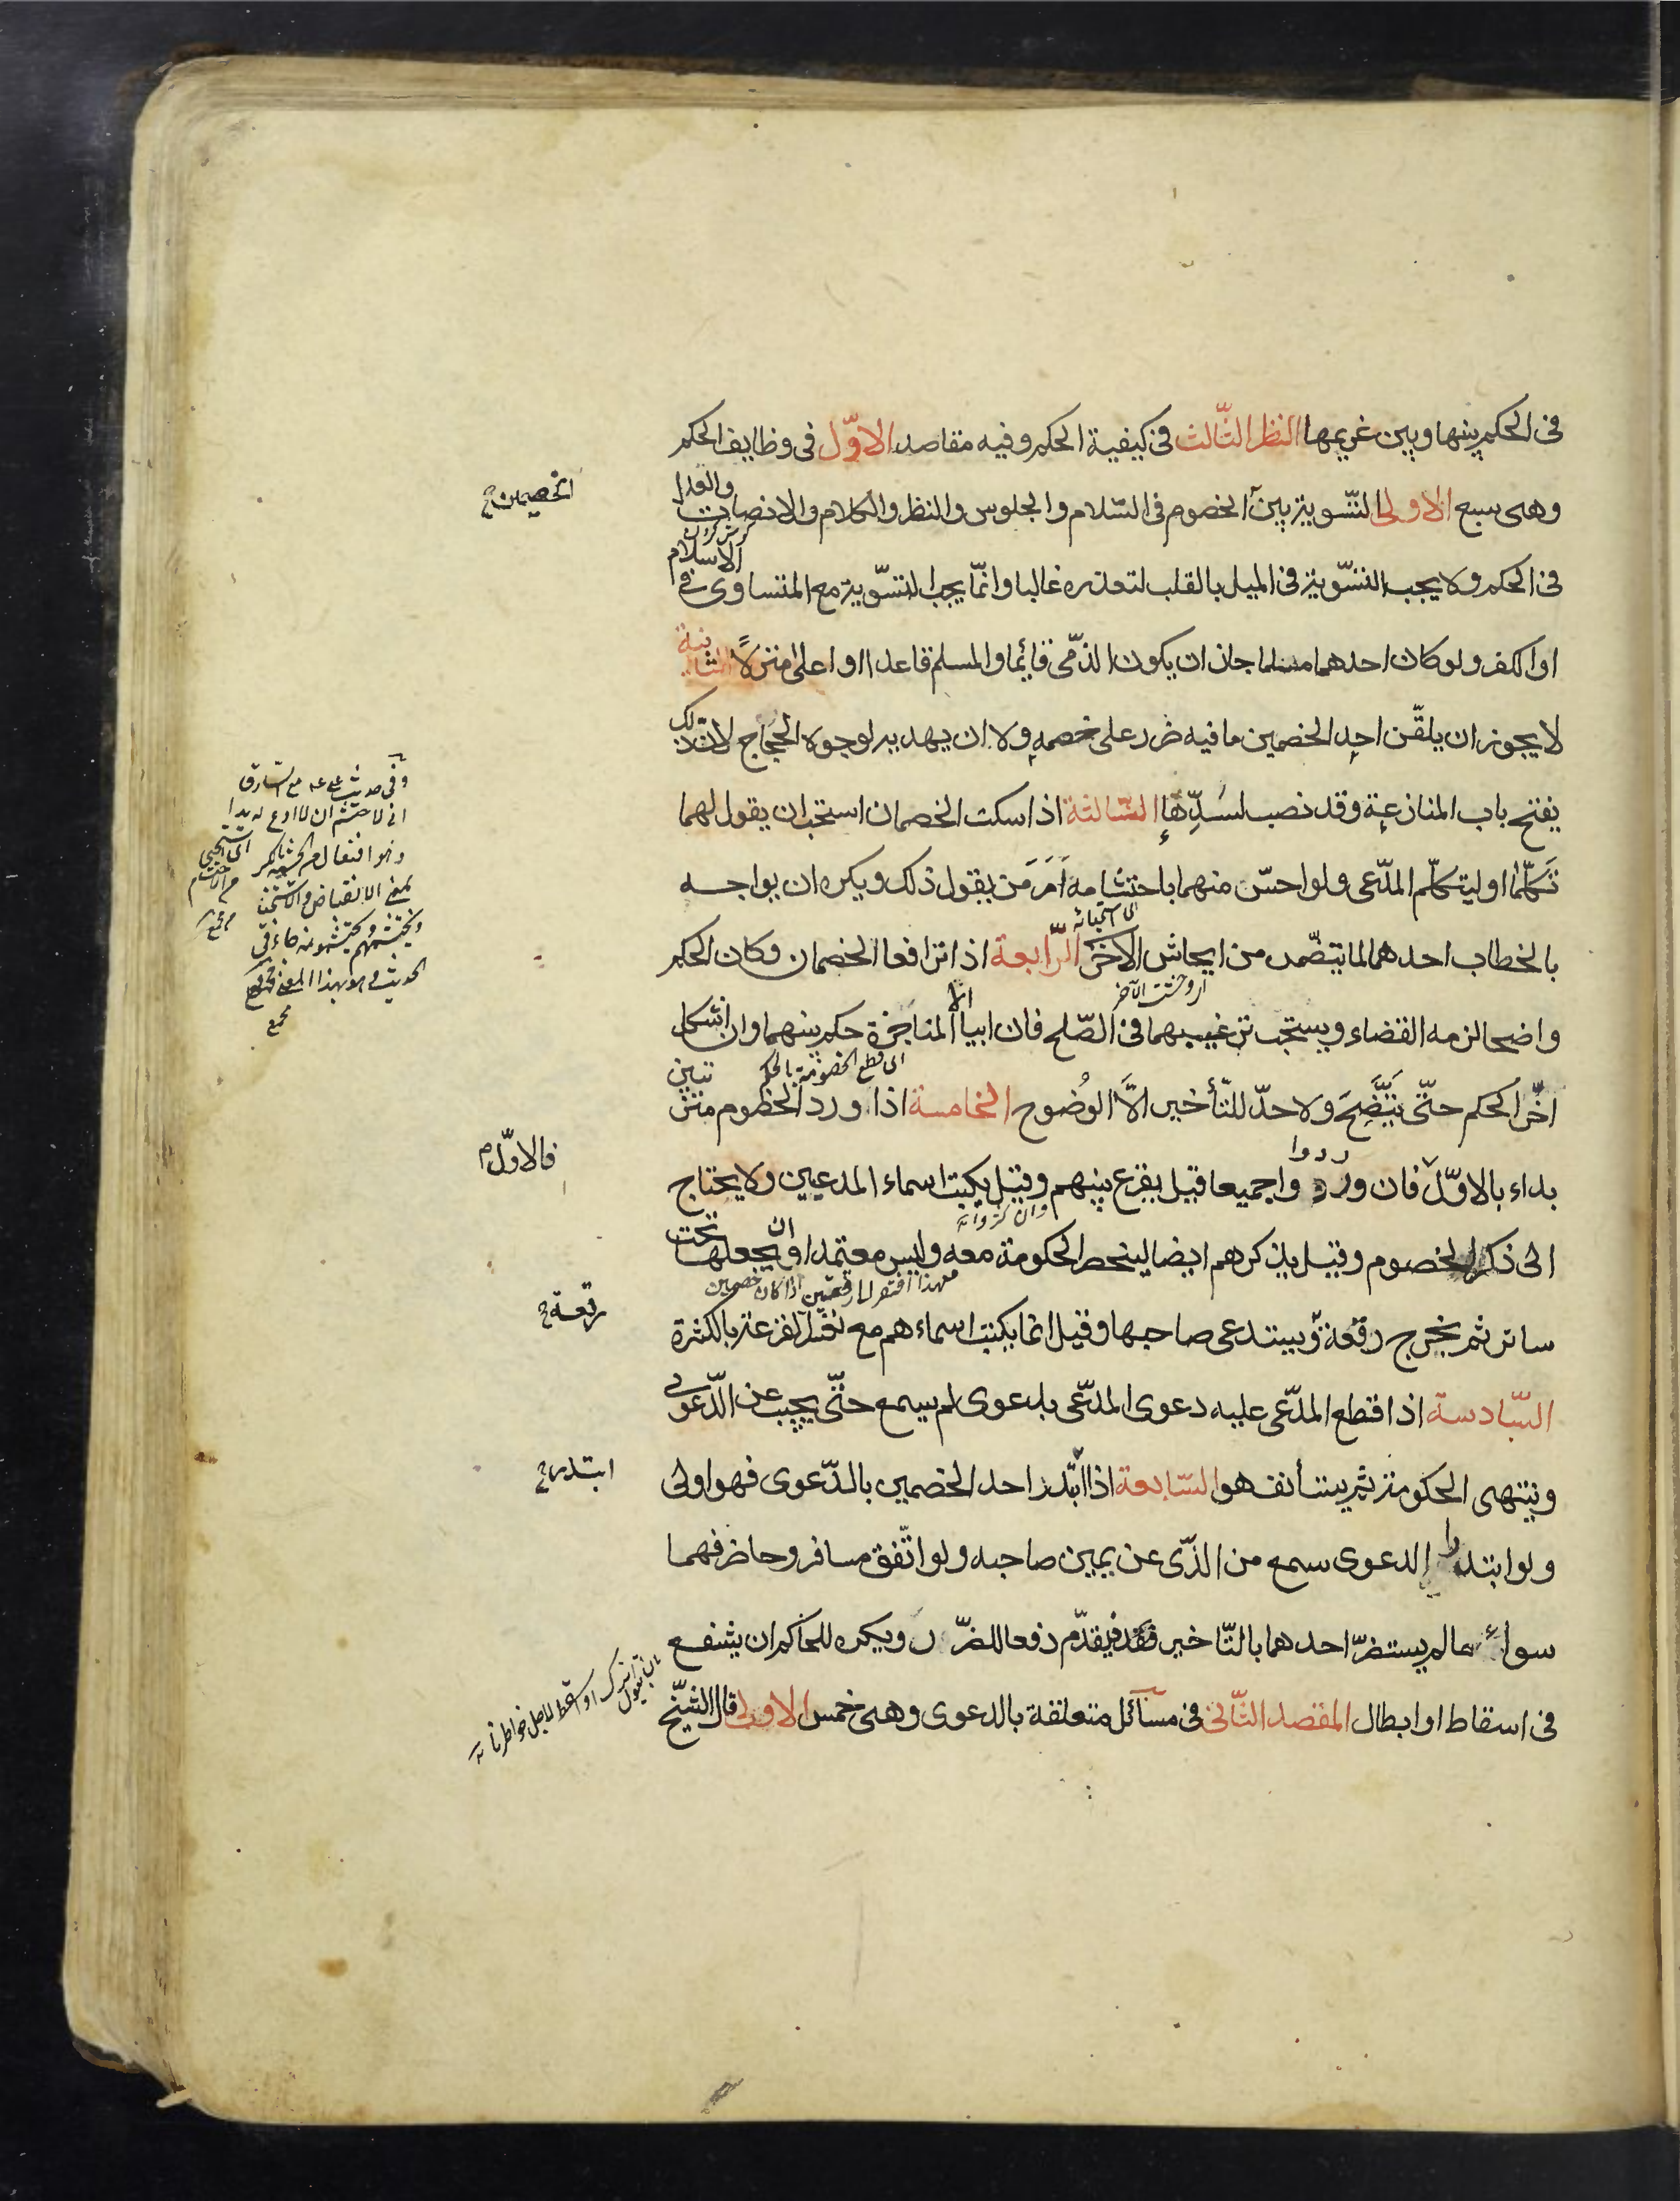 فى الحكم بينها وبين غريمها النظر الثّالث فى كيفية الحكم وفيه مقاصد الاوّل فى وظايف الحكم
وهى سبع الاولى التسّوية بين الخصوم فى السّلام والجلوس والنظر والكلام والانصات والعدل
فى الحكم ولا يجب التسّوية فى الميل بالقلب لتعذره غالبا وانّما يجب التسّوية مع المتساوى فى الاسلام
او الكفر ولو كان احدهما مسلما جاز ان يكون الذمّى قائما والمسلم قاعدا او اعلى منزلاً الثانية
لا يجوز ان يلقّن احد الخصمين ما فيه ضرر على خصمه ولا ان يهديه لوجوه الحجاج لانّ ذلك
يفتح باب المنازعة وقد نصب لسدّها الثالثة اذا سكت الخصمان استحبّ ان يقول لهما
تَكلّما او ليتكلّم المدّعى ولو احسّ منهما باحتشامه اَمَرَ مَن يقول ذلك ويكره ان يواجه
بالخطاب احدهما لما يتضمّن من ايحاش الاخر الرّابعة اذا ترافعا الخصمان وكان الحكم
واضحا لزمه القضاء ويستحبّ ترغيبهما فى الصّلح فان ابيا الّا المناجزة حكم بينهما وان اشكل
اخّر الحكم حتّى يتّضح ولا حدّ للتّأخير الاّ الوُضوح الخامسة اذا ورد الخصوم مترتبين
بداء بالاوّل فان وردوا جميعا قيل يقرع بينهم وقيل يكتب اسماء المدعيين ولا يحتاج
الى ذكر الخصوم وقيل يذكرهم ايضا لينحصر الحكومة معه وليس معتمدا ان ويجعلها تحت
ساتر ثم يخرج رقعة ويستدعى صاحبها وقيل انما يكتب اسماءهم مع تعسّر القرعة بالكثرة
السّادسة اذا قطع المدّعى عليه دعوى المدّعى بدعوى لم يسمع حتّى يجيب عن الدّعوى
وينتهى الحكومة ثم يستأنف هو السّابعة اذا ابتدر احد الخصمين بالدّعوى فهو اولى
ولو ابتدرا الدعوى سمع من الذّى عن يمين صاحبه ولو اتّفق مسافر وحاضر فهما
سواء ما لم يستضرّ احدهما بالتّاخير فيقدّم دفعا للضّرر ويكره للحاكم ان يشفع
فى اسقاط او ابطال المقصد الثّانى فى مسائل متعلقة بالدعوى وهى خمس الاولى قال الشّيخ
الخصمين
فالاوّل
رقعة
ابتدر
الى قطع الخصومة بالحكم